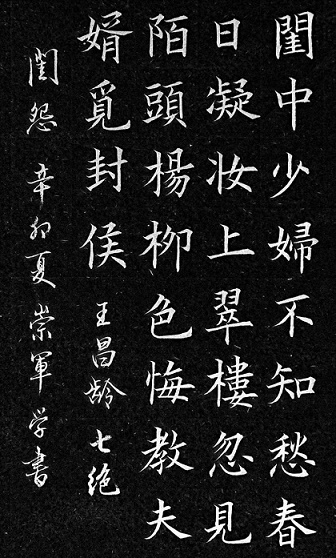 閨中少婦不知愁春
日凝妝上翠樓忽見
陌頭楊柳色悔教夫
婿覓封侯 王昌龄 七绝
閨怨 辛卯夏 崇軍学書